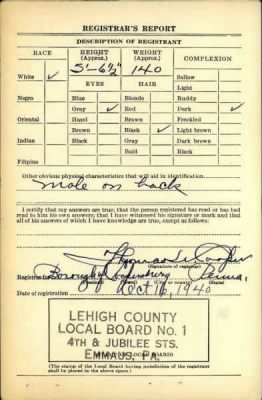 REGISTRAR'S REPORT
DESCRIPTION OF REGISTRANT
RACE HEIGHT (Approx.) WEIGHT (Approx.) COMPLEXION
5'-6½" 140
White ✓ Sallow
EYES HAIR Light
Negro Blue Blonde Ruddy
Gray ✓ Red Dark ✓
Oriental Hazel Brown Freckled
Brown Black ✓ Light brown
Indian Black Gray Dark brown
Bald Black
Filipino
Other obvious physical characteristics that will aid in identification
Mole on back
I certify that my answers are true; that the person registered has read or has had
read to him his own answers; that I have witnessed his signature or mark and that
all of his answers of which I have knowledge are true, except as follows:
(Signature of registrar)
Registrar for Borough Penna.
(City or county) (State)
Date of registration Oct 16, 1940
LEHIGH COUNTY
LOCAL BOARD No. 1
4TH & JUBILEE STS.
EMMAUS, PA.
(The stamp of the Local Board having jurisdiction of the registrant
shall be placed in the above space.)